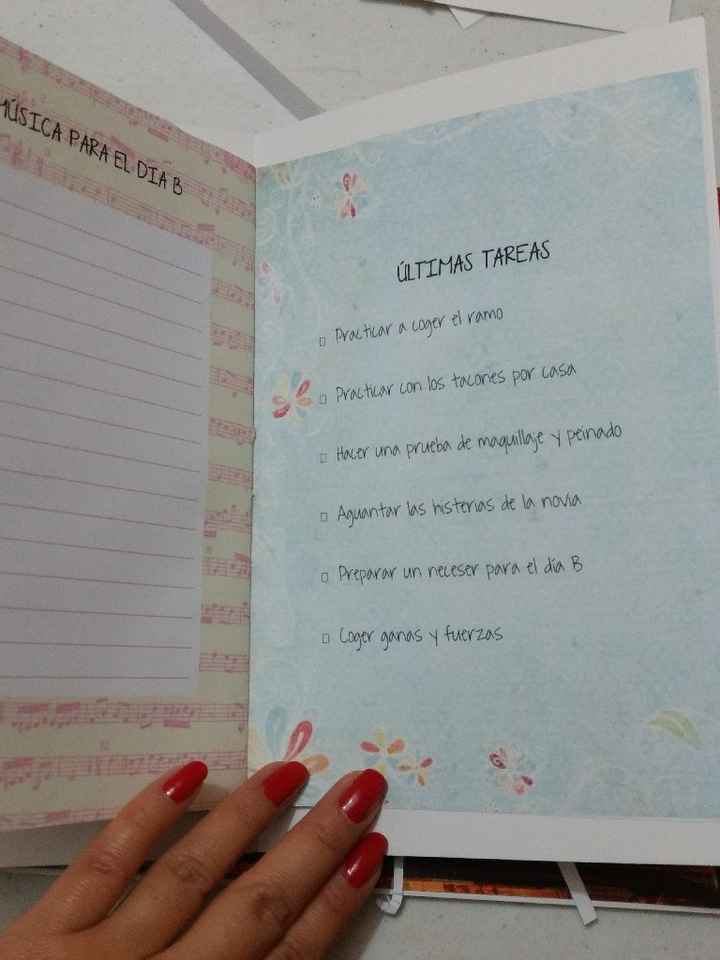 MÚSICA PARA EL DIA B
ÚLTIMAS TAREAS
Practicar a coger el ramo
Practicar con los tacones por casa
Hacer una prueba de maquillaje y peinado
Aguantar las histerias de la novia
Preparar un neceser para el día B
Coger ganas y fuerzas